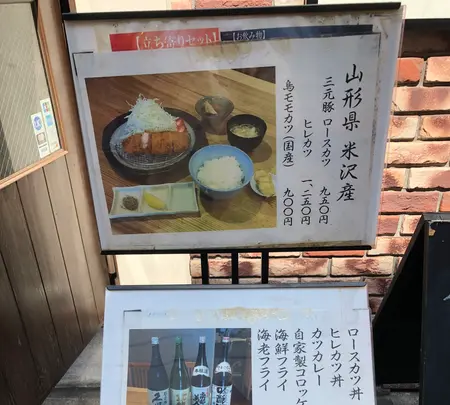 【立ち寄りセット】
【お飲み物】
山形県 米沢産
三元豚 ロースカツ 九五〇円
ヒレカツ 一、二五〇円
鳥モモカツ(国産) 九〇〇円
ロースカツ丼
ヒレカツ丼
カツカレー
自家製コロッケ
海鮮フライ
海老フライ